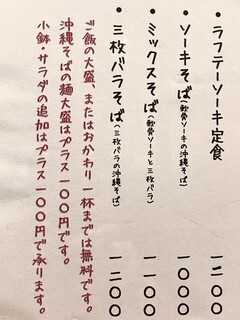 • ラフテーソーキ定食 一二〇〇
• ソーキそば(軟骨ソーキの沖縄そば) 一〇〇〇
• ミックスそば(軟骨ソーキと三枚バラ) 一一〇〇
• 三枚バラそば(三枚バラの沖縄そば) 一二〇〇
ご飯の大盛、またはおかわり一杯までは無料です。
沖縄そばの麺大盛はプラス一〇〇円です。
小鉢・サラダの追加はプラス一〇〇円で承ります。